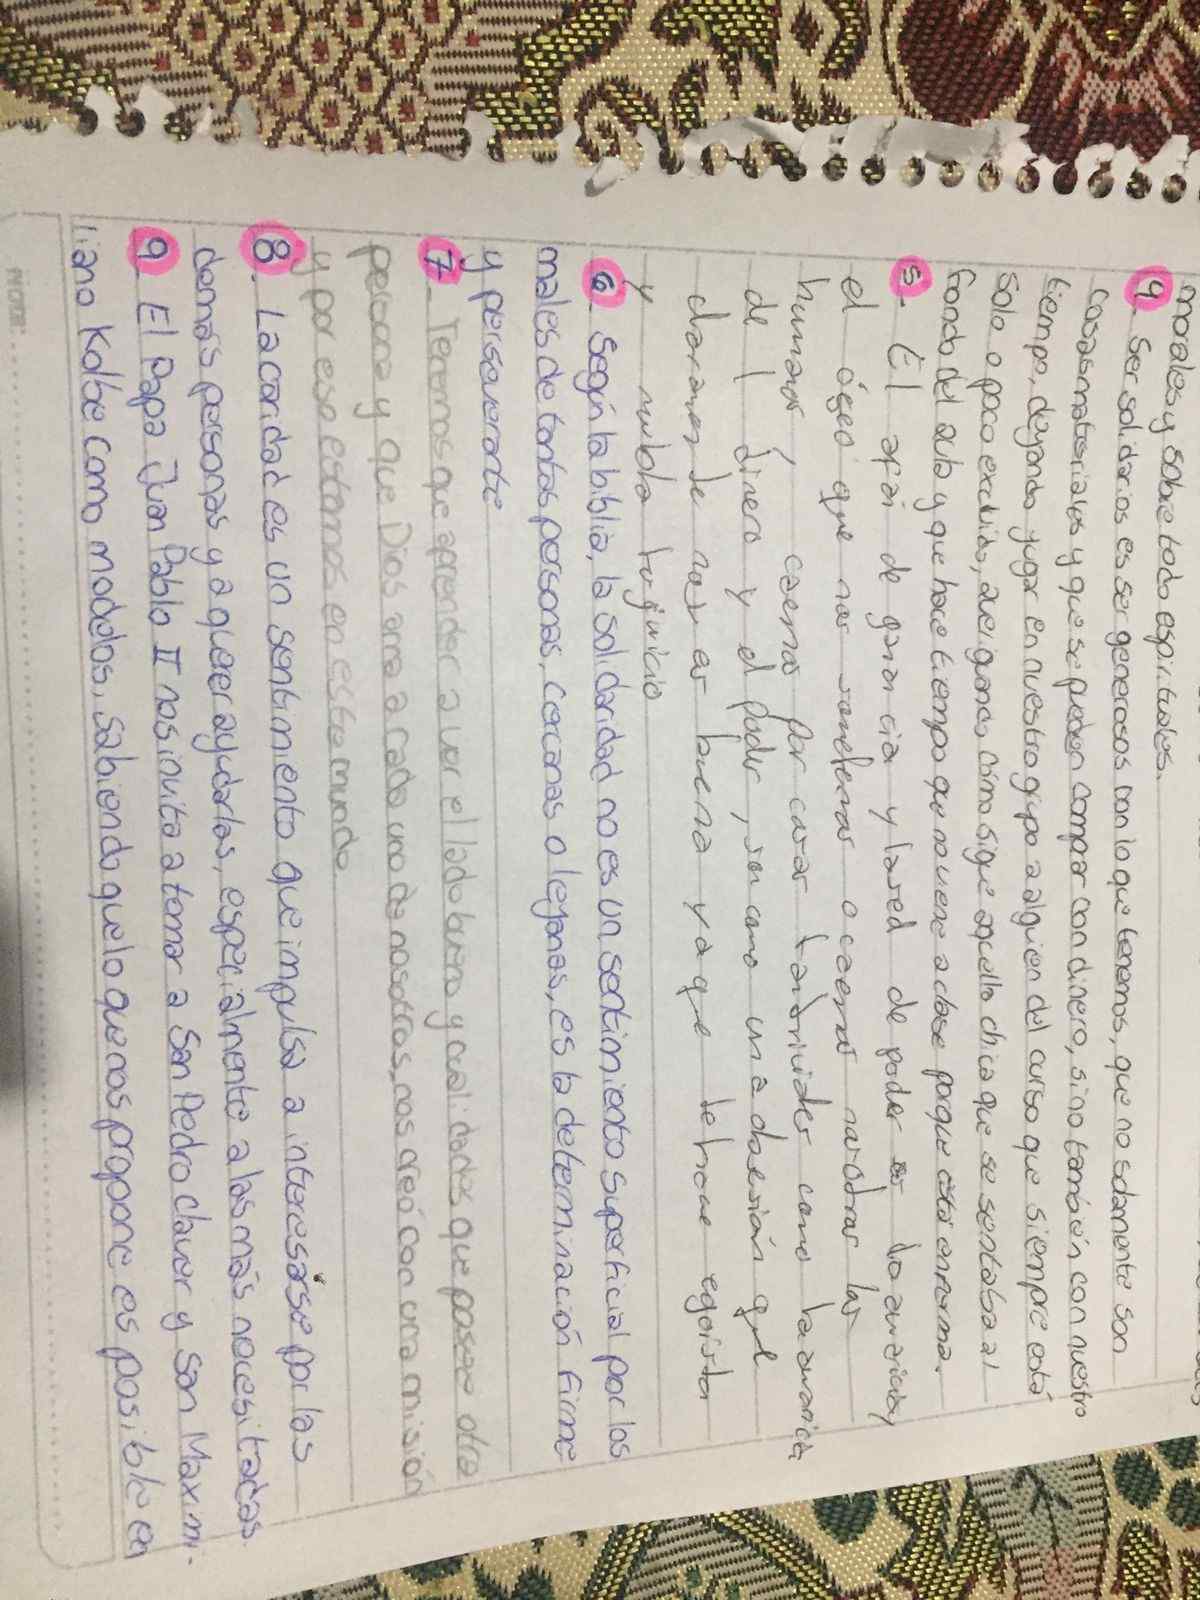 morales y sobre todo espirituales.
4. Ser solidarios es ser generosos con lo que tenemos, que no solamente son
cosas materiales y que se pueden comprar con dinero, sino también con nuestro
tiempo, dejando jugar en nuestro grupo a alguien del curso que siempre está
solo o poco excluido, averigando cómo sigue aquella chica que se sentaba al
fondo del aula y que hace tiempo que no viene a clase porque está enferma.
5. El afán de ganancia y la sed de poder es la avaricia y
el deseo que nos a caernos nosotros los
humanos, caemos por cosas como la avaricia
de l dinero y el poder, son como una que
darames de nos es buena ya que te hace egoista
y nubla tu juicio
6. Según la biblia, la solidaridad no es un sentimiento superficial por los
males de tantas personas, cercanas o lejanas, es la determinación firme
y perseverante
7. Tenemos que aprender a ver el lado bueno y cualidades que posee otra
persona y que Dios ama a cada uno de nosotros, nos creó con una misión
y por eso estamos en este mundo
8. La caridad es un sentimento que impulsa a interesarse por las
demás personas y a querer ayudarlas, especialmente a las más necesitadas.
9. El Papa Juan Pablo II nos invita a tomar a San Pedro Claver y San Maximi-
liano Kolbe como modelos, sabiendo que lo que nos propone es posible en
NOTE: